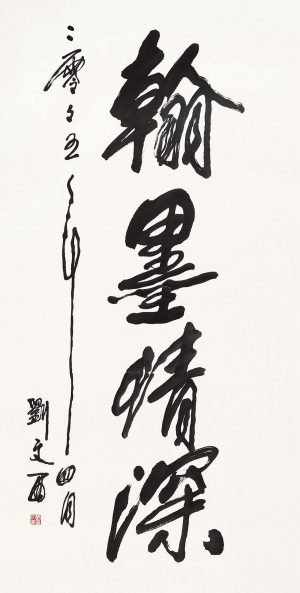 翰墨情深
二零零五年四月
劉文西